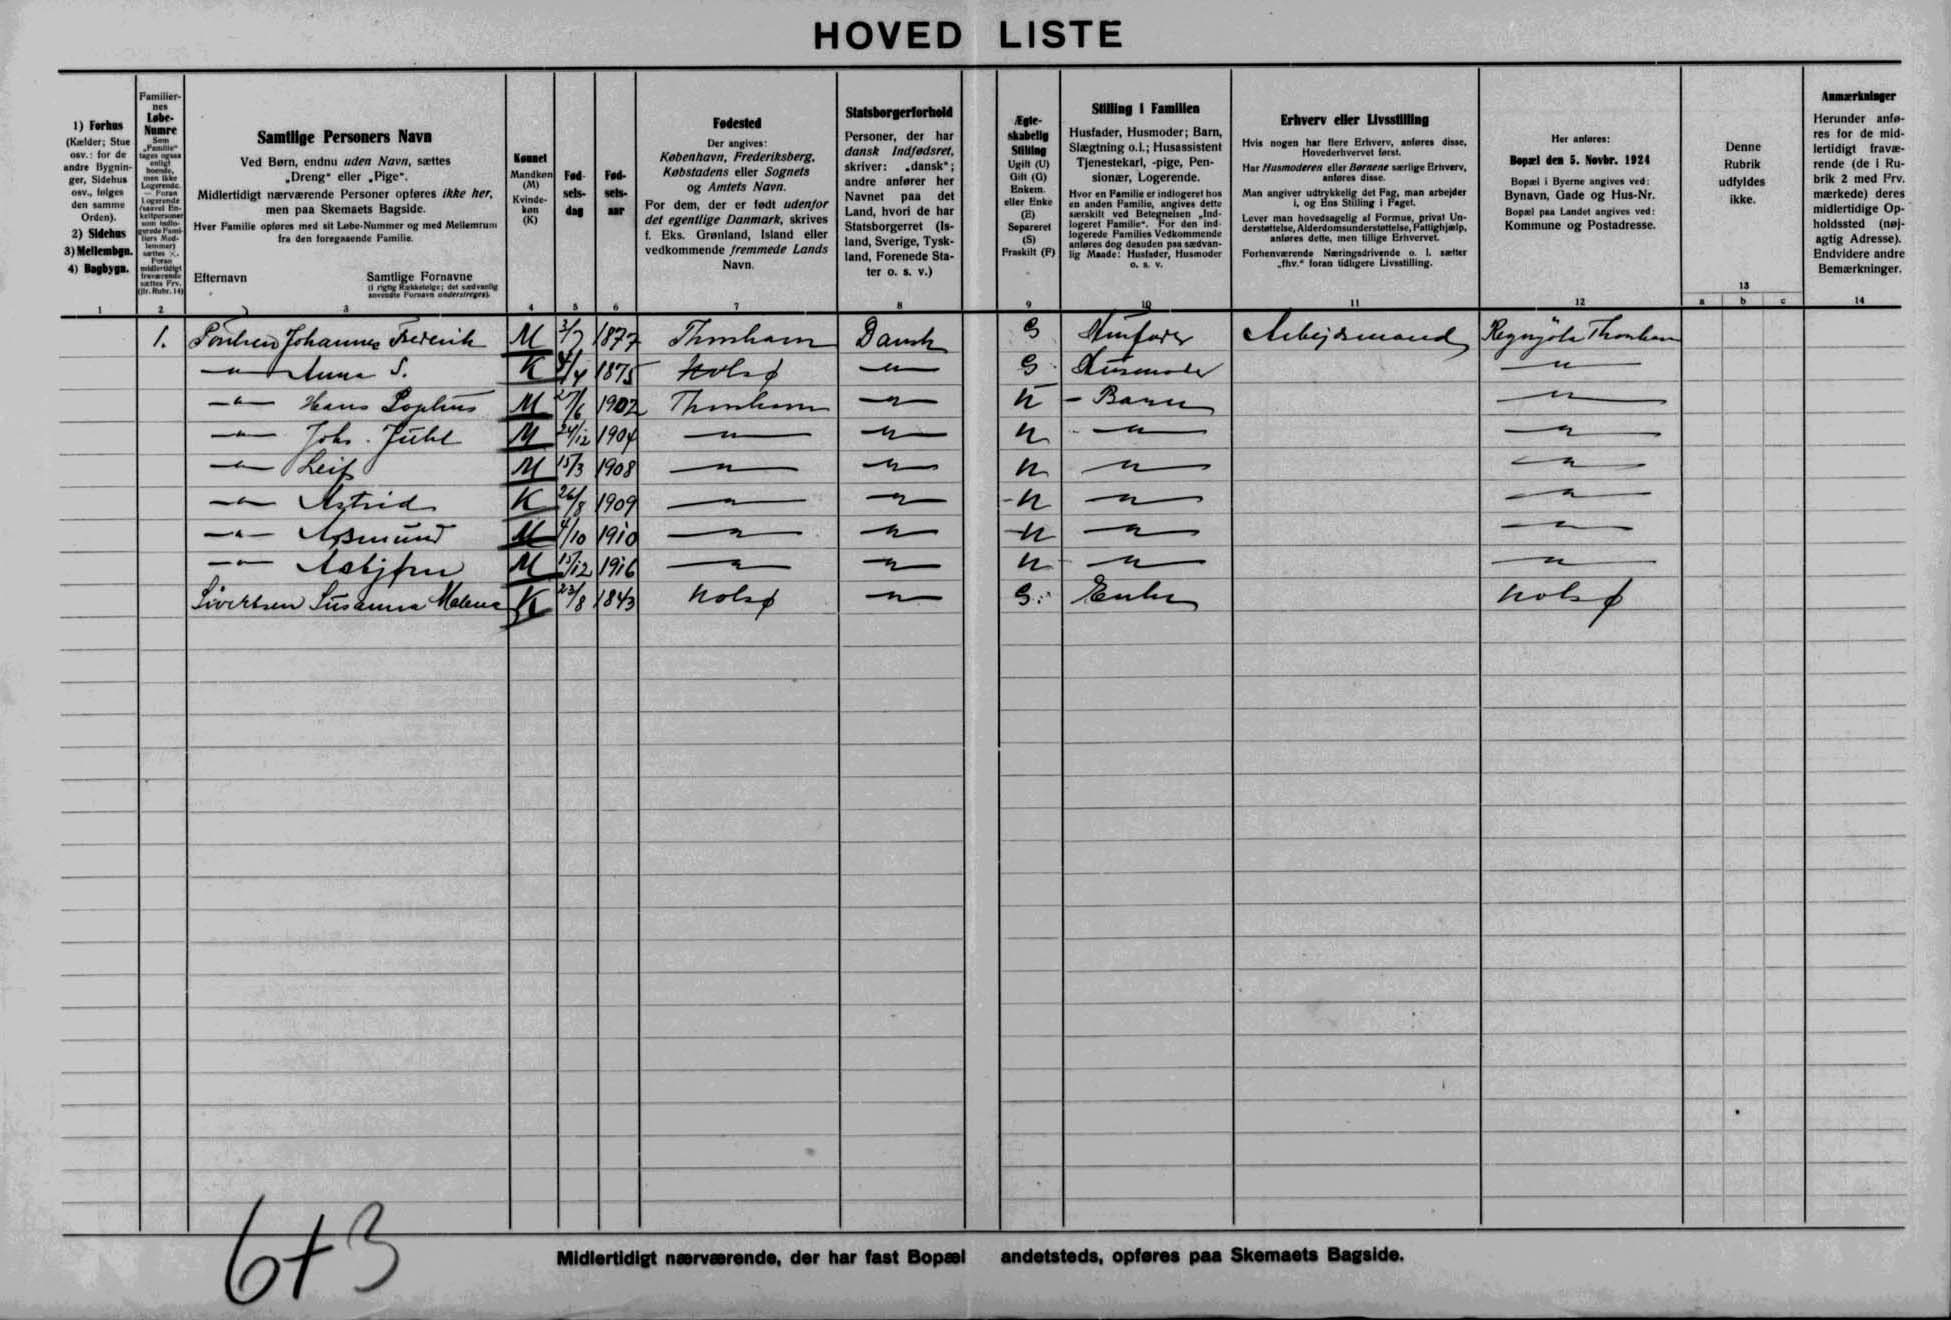 HOVED LISTE
1) Forhus
(Kælder; Stue
osv.: for de
andre Bygnin-
ger, Sidehus
osv., følges
den samme
Orden).
2) Sidehus
3) Mellembgn.
4) Bagbygn.
1
Familier-
nes
Løbe-
Numre
Som
„Familie"
tages ogsaa
enligt
boende,
men ikke
Logerende.
— Foran
Logerende
(saavel En-
keltpersoner
som indlo-
gerede Fami-
liers Med-
lemmer)
sættes ×.
Foran
midlertidigt
fraværende
sættes Frv.
(jfr. Rubr. 14)
2
Samtlige Personers Navn
Ved Børn, endnu uden Navn, sættes
„Dreng" eller „Pige".
Midlertidigt nærværende Personer opføres ikke her,
men paa Skemaets Bagside.
Hver Familie opføres med sit Løbe-Nummer og med Mellemrum
fra den foregaaende Familie.
Efternavn
Samtlige Fornavne
(i rigtig Rækkefølge; det sædvanlig
anvendte Fornavn understreges).
3
Kønnet
Mandkøn
(M)
Kvinde-
køn
(K)
4
Fød-
sels-
dag
5
Fød-
sels-
aar
6
Fødested
Der angives:
København, Frederiksberg,
Købstadens eller Sognets
og Amtets Navn.
For dem, der er født udenfor
det egentlige Danmark, skrives
f. Eks. Grønland, Island eller
vedkommende fremmede Lands
Navn.
7
Statsborgerforhold
Personer, der har
dansk Indfødsret,
skriver: „dansk";
andre anfører her
Navnet paa det
Land, hvori de har
Statsborgerret (Is-
land, Sverige, Tysk-
land, Forenede Sta-
ter o. s. v.)
8
Ægte-
skabelig
Stilling
Ugift (U)
Gift (G)
Enkem.
eller Enke
(E)
Separeret
(S)
Fraskilt (F)
9
Stilling i Familien
Husfader, Husmoder; Barn,
Slægtning o.l.; Husassistent
Tjenestekarl, -pige, Pen-
sionær, Logerende.
Hvor en Familie er indlogeret hos
en anden Familie, angives dette
særskilt ved Betegnelsen „Ind-
logeret Familie". For den ind-
logerede Families Vedkommende
anføres dog desuden paa sædvan-
lig Maade: Husfader, Husmoder
o. s. v.
10
Erhverv eller Livsstilling
Hvis nogen har flere Erhverv, anføres disse,
Hovederhvervet først.
Har Husmoderen eller Børnene særlige Erhverv,
anføres disse.
Man angiver udtrykkelig det Fag, man arbejder
i, og Ens Stilling i Faget.
Lever man hovedsagelig af Formue, privat Un-
derstøttelse, Alderdomsunderstøttelse, Fattighjælp,
anføres dette, men tillige Erhvervet.
Forhenværende Næringsdrivende o. l. sætter
„fhv." foran tidligere Livsstilling.
11
Her anføres:
Bopæl den 5. Novbr. 1924
Bopæl i Byerne angives ved:
Bynavn, Gade og Hus-Nr.
Bopæl paa Landet angives ved:
Kommune og Postadresse.
12
Denne
Rubrik
udfyldes
ikke.
13
a b c
Anmærkninger
Herunder anfø-
res for de mid-
lertidigt fravæ-
rende (de i Ru-
brik 2 med Frv.
mærkede) deres
midlertidige Op-
holdssted (nøj-
agtig Adresse).
Endvidere andre
Bemærkninger.
14
1. Johannes Frederik M 3/7 1877 Thorshavn Dansk G Husfader Arbejdsmand Thorshavn
—"— Anna S. K 4/4 1875 Nolsø —"— G Husmoder —"—
—"— Hans Sophus M 27/6 1902 Thorshavn —"— U — Barn —"—
—"— Johs. Juhl M 24/12 1904 —"— —"— U —"— —"—
—"— Leif M 15/3 1908 —"— —"— U —"— —"—
—"— Astrid K 26/8 1909 —"— —"— U —"— —"—
—"— Asmund M 4/10 1910 —"— —"— U —"— —"—
—"— Asbjørn M 15/12 1916 —"— —"— U —"— —"—
Sivertsen Susanna Malena K 23/8 1843 Nolsø —"— G: Enke Nolsø
6+3
Midlertidigt nærværende, der har fast Bopæl andetsteds, opføres paa Skemaets Bagside.